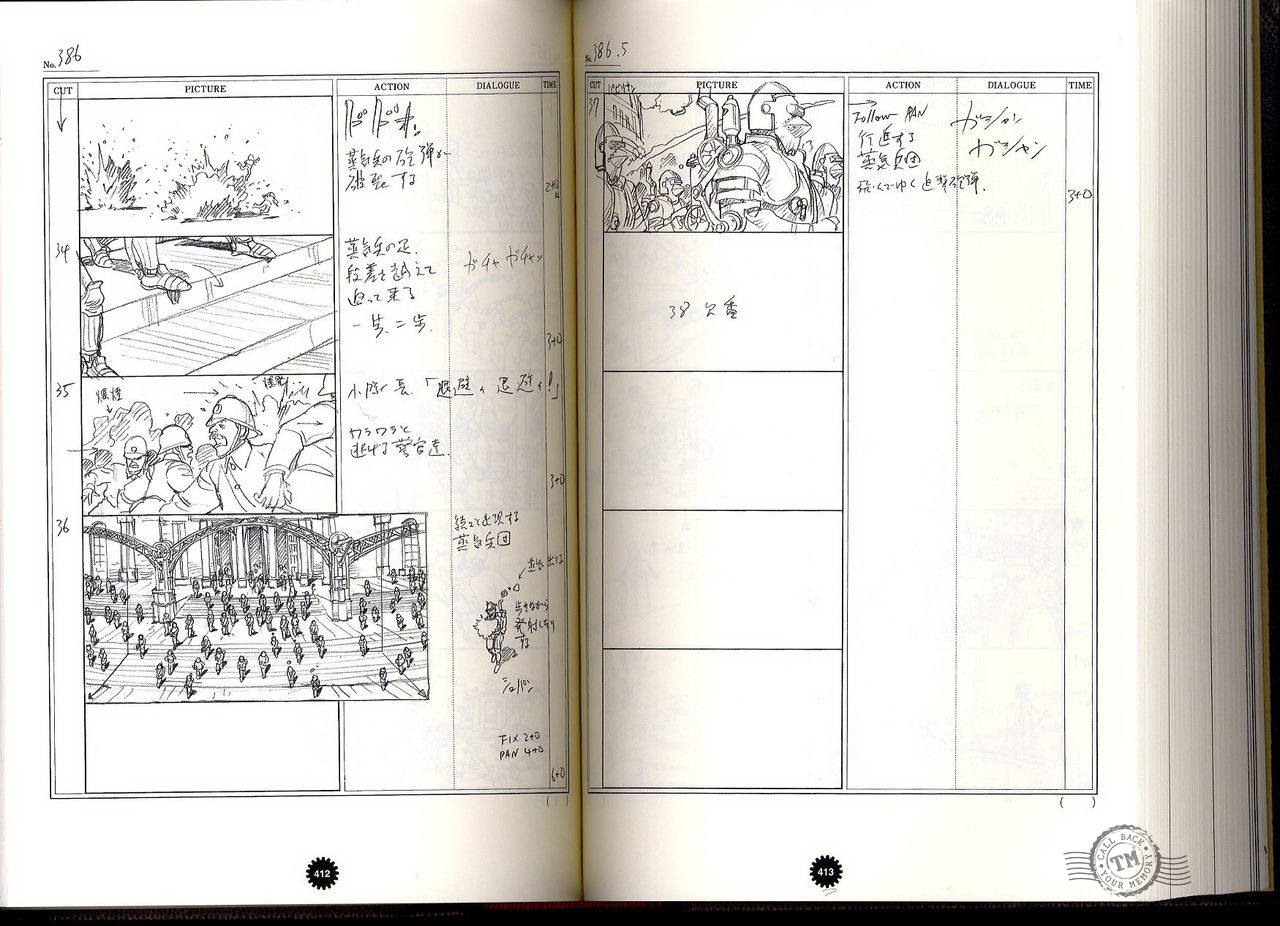 No. 386
CUT
PICTURE
ACTION
DIALOGUE
TIME
蒸気兵の砲弾が
破裂する
34
蒸気兵の足.
段差を越えて
迫って来る
一歩、二歩.
ガチャ ガチャッ
3+0
35
爆煙
小隊長「退避ィ 退避ィ!」
ワラワラと
逃げる警官達.
3+0
36
続々と出現する
蒸気兵団
歩きながら
発射したり
する
FIX 2+0
PAN 4+0
6+0
( )
412
No. 386.5
CUT
PICTURE
ACTION
DIALOGUE
TIME
37
Follow PAN
行進する
蒸気兵団
飛んでゆく追撃砲弾.
ガシャン
ガシャン
3+0
38 欠番
( )
413
CALL BACK
TM
YOUR MEMORY